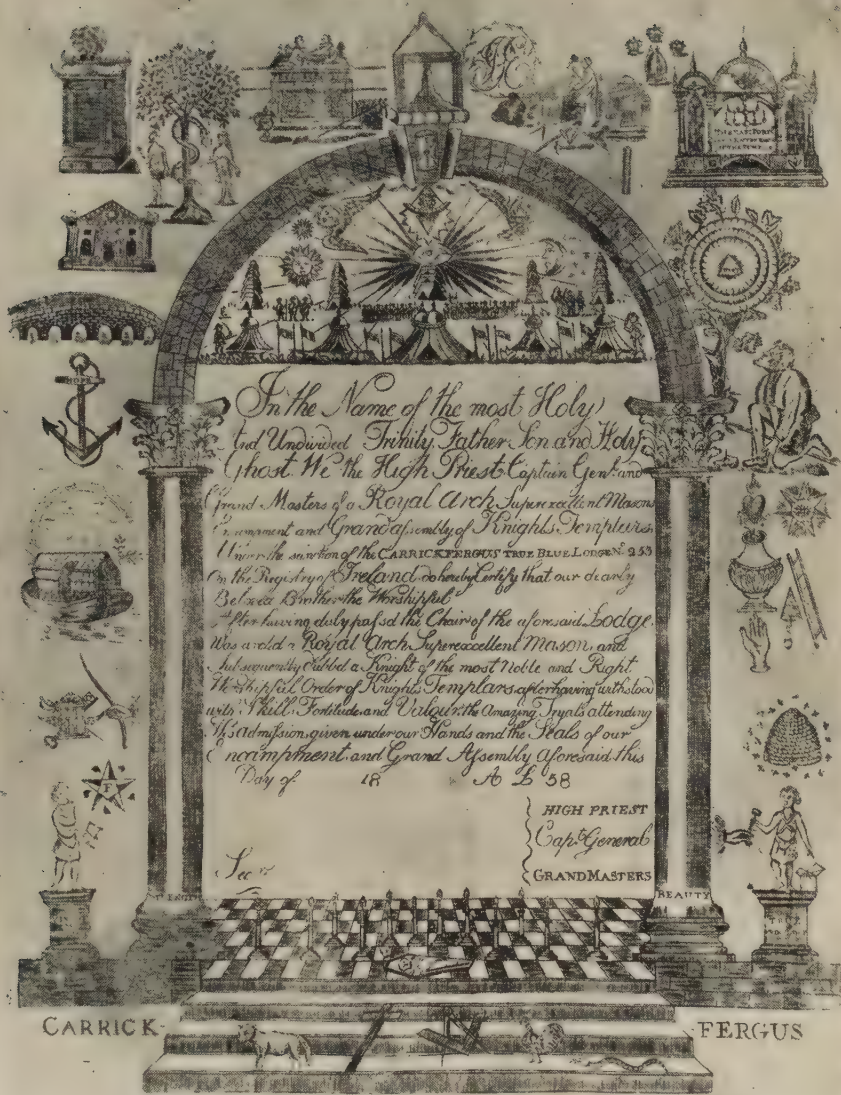 HOPE
In the Name of the most Holy
And Undivided Trinity Father Son and Holy
Ghost We the High Priest Captain Genl. and
Grand Masters of a Royal Arch Superexcellent Masons
Encampment and Grand assembly of Knights Templars
Under the sanction of the CARRICKFERGUS TRUE BLUE LODGE No. 253
On the Registry of Ireland do hereby Certify that our dearly
Beloved Brother the Worshipful
After having duly passd the Chair of the aforesaid Lodge
Was a Royal Arch Superexcellent Mason and
subsequently dubbd a Knight of the most Noble and Right
Worshipful Order of Knights Templars after having withstood
with Skill Fortitude and Valour the Amazing Tryals attending
His admission given under our Hands and the Seals of our
Encampment and Grand Assembly aforesaid this
Day of 18 A L 58
HIGH PRIEST
Capt. General
Secry
GRAND MASTERS
BEAUTY
CARRICK-
FERGUS